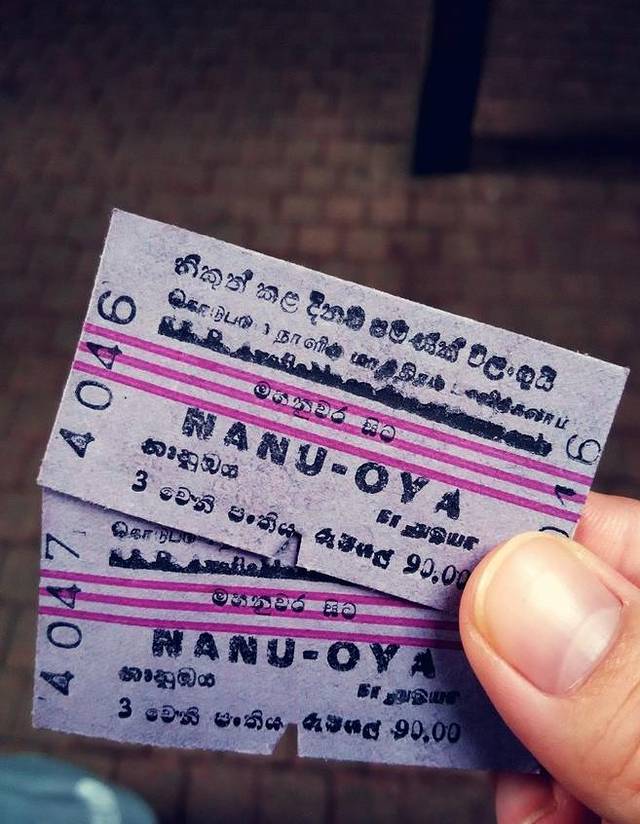 නිකුත් කළ දිනට පමණක් වලංගුයි
4046
මහනුවර සිට
NANU-OYA
නානුඔය
நானுஓயா
3 වෙනි පංතිය රුපියල් 90.00
4047
මහනුවර සිට
NANU-OYA
නානුඔය
நானுஓயா
3 වෙනි පංතිය රුපියල් 90.00